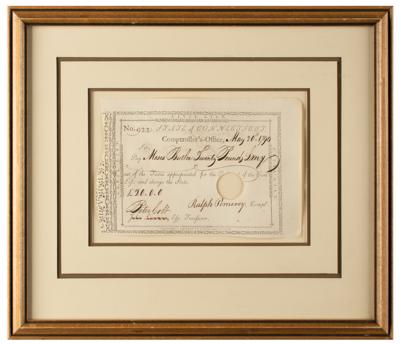 No. 922 STATE of CONNECTICUT.
Comptroller's-Office, May 26th 1790
Sir,
Pay Moses Butler Twenty Pounds
out of the Funds appropriated for the of the Civil
List, and charge the State.
£20.0.0
Ralph Pomeroy, Compt.
Peter Colt
Esq. Treasurer.